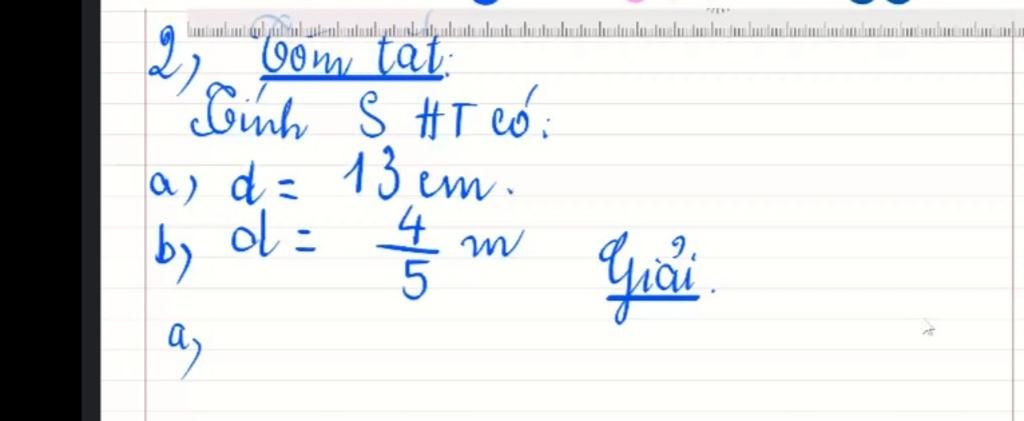 2, Tóm tắt:
Tính S HT có:
a, d = 13 cm.
b, d = 4/5 m
Giải.
a,